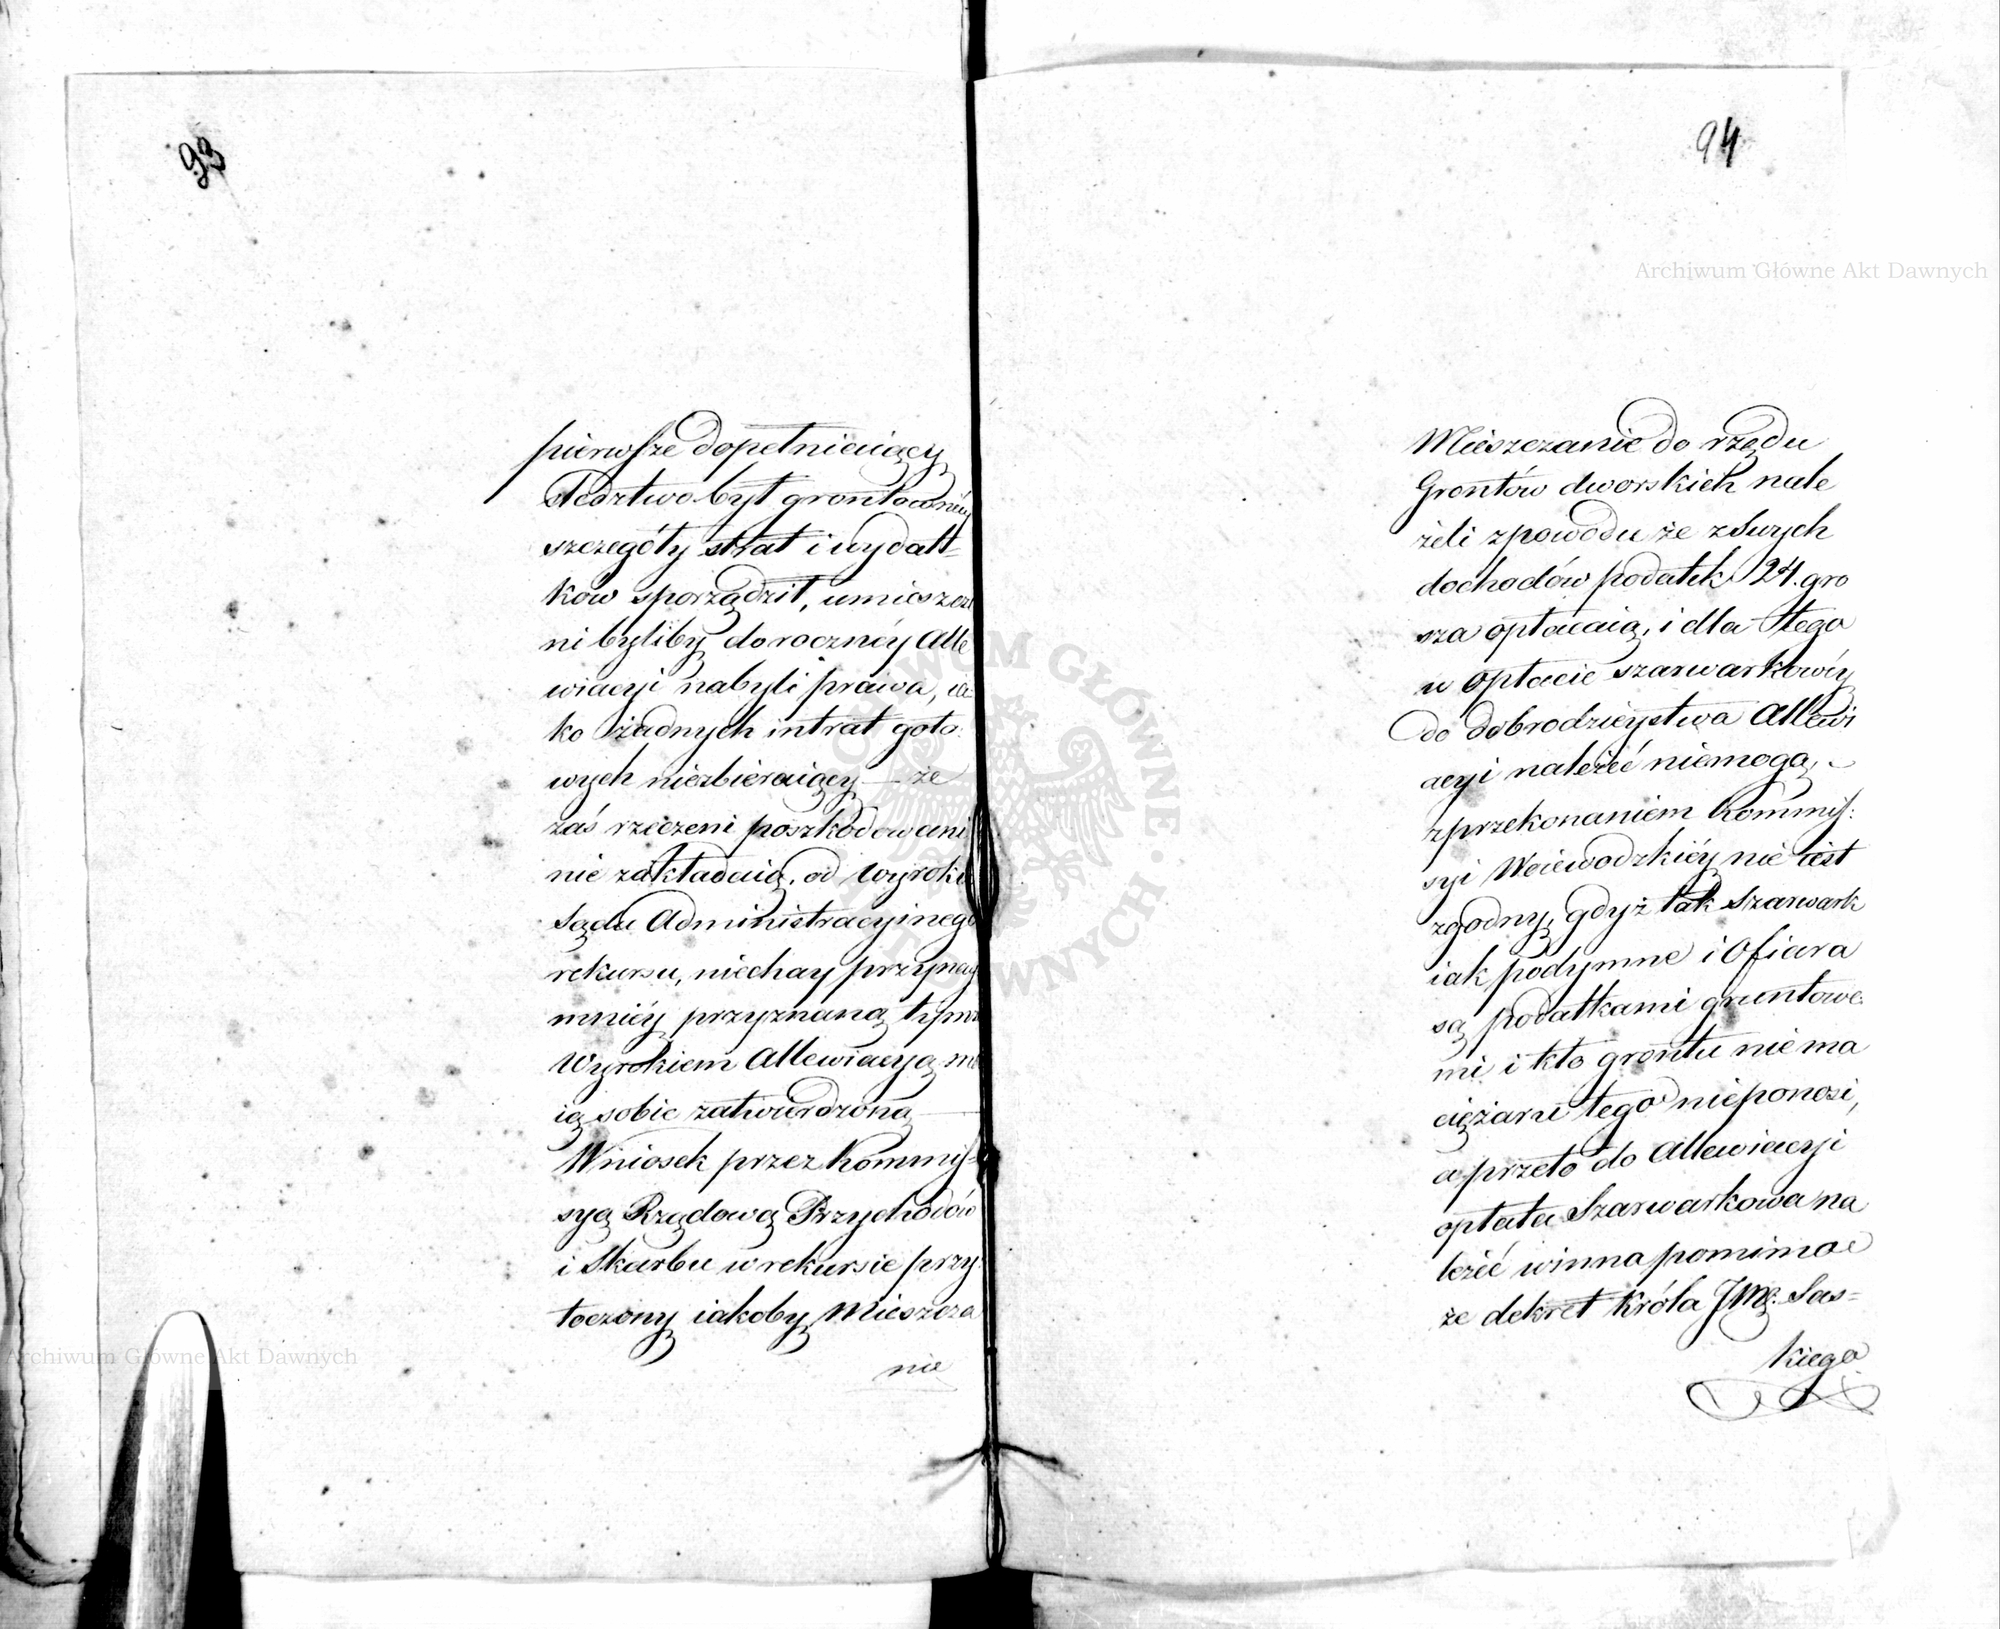 93
pierwsze dopełniaiący
śledztwo był grontowniéy
szczegóły strat i wydatt-
ków sporządził, umieszcze
ni byliby do roczney Alle
wiacyi nabyli prawa, ia-
ko żadnych intrat goto-
wych niezbieraiący — że
zaś rzeczeni poszkodowani
nie zakładaią, od wyroku
Sądu Administracyinego
rekursu, niechay przynay
mniéy przyznaną tym
Wyrokiem Allewiacyą ma
ią sobie zatwierdzoną —
Wniosek przez Kommis-
syą Rządową Przychodów
i Skarbu w rekursie przy-
toczony iakoby Mieszcza
nie
94
Mieszczanie do rzędu
Grontów dworskich nale
żeli zpowodu że zSwych
dochodów podatek 24. gro
sza opłacaią, i dla tego
w opłacie szarwarkowéy
do dobrodzieystwa Allewi
acyi należeć niemogą, —
zprzekonaniem Kommis:
syi Woiewodzkiéy nie iest
zgodny, gdyż tak Szarwark
iak podymne i Ofiara
są podatkami gruntowe-
mi i kto grontu niema
ciężaru tego nieponosi,
a przeto do Allewiacyi
opłata Szarwarkowa na
leżeć winna pomimo
że dekret Króla JMę. Sas=
kiego
Archiwum Główne Akt Dawnych
Archiwum Główne Akt Dawnych
ARCHIWUM GŁÓWNE AKT DAWNYCH